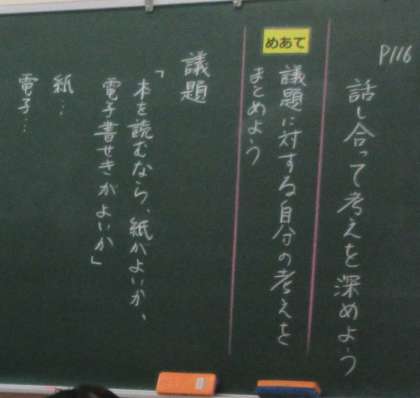 P116
話し合って考えを深めよう
めあて
議題に対する自分の考えを
まとめよう
議題
「本を読むなら、紙がよいか、
電子書せきがよいか」
紙…
電子…